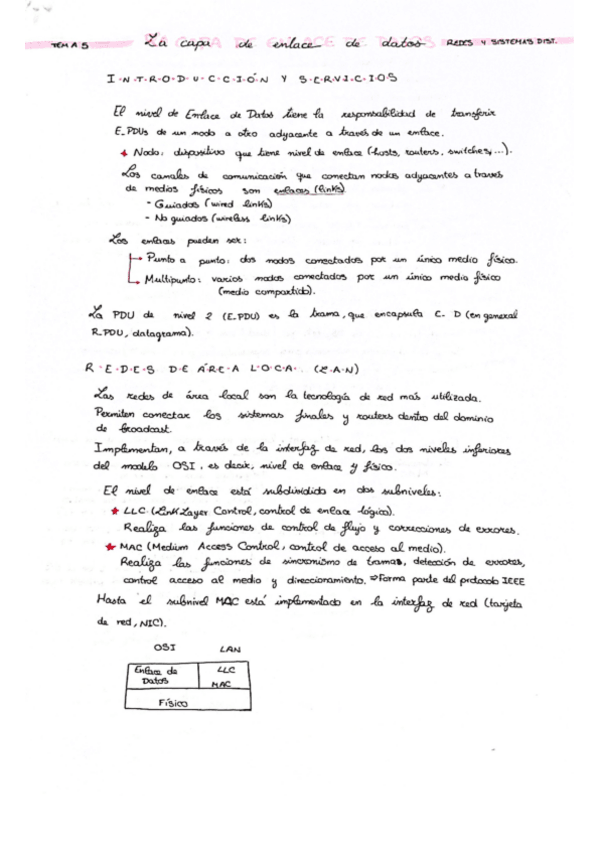 TEMA 5 La capa de enlace de datos REDES Y SISTEMAS DIST.
I·N·T·R·O·D·U·C·C·I·Ó·N Y S·E·R·V·I·C·I·O·S
El nivel de Enlace de Datos tiene la responsabilidad de transferir
E_PDUs de un nodo a otro adyacente a través de un enlace.
Nodo: dispositivo que tiene nivel de enlace (hosts, routers, switches, ...).
Los canales de comunicación que conectan nodos adyacentes a través
de medios físicos son enlaces (links)
- Guiados (wired links)
- No guiados (wireless links)
Los enlaces pueden ser:
Punto a punto: dos nodos conectados por un único medio físico.
Multipunto: varios nodos conectados por un único medio físico
(medio compartido).
La PDU de nivel 2 (E_PDU) es la trama, que encapsula C. D (en general
R_PDU, datagrama).
R·E·D·E·S D·E Á·R·E·A L·O·C·A· (L·A·N)
Las redes de área local son la tecnología de red más utilizada.
Permiten conectar los sistemas finales y routers dentro del dominio
de broadcast.
Implementan, a través de la interfaz de red, los dos niveles inferiores
del modelo OSI, es decir, nivel de enlace y físico.
El nivel de enlace está subdividido en dos subniveles:
★ LLC (Link Layer Control, control de enlace lógico).
Realiza las funciones de control de flujo y correcciones de errores.
★ MAC (Medium Access Control, control de acceso al medio).
Realiza las funciones de sincronismo de tramas, detección de errores,
control acceso al medio y direccionamiento. ⇒ Forma parte del protocolo IEEE
Hasta el subnivel MAC está implementado en la interfaz de red (tarjeta
de red, NIC).
OSI LAN
Enlace de LLC
Datos MAC
Físico